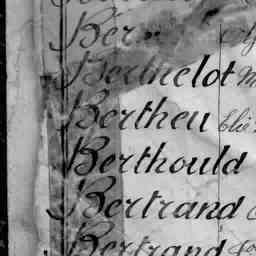 Ber
Berthelot
Bertheu Elie
Berthould
Bertrand
Bertrand